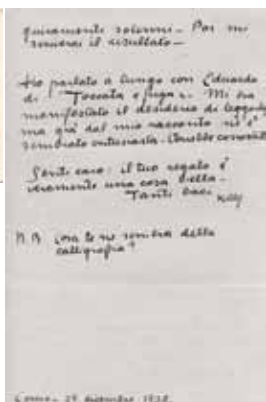 quiramente solermi. Poi mi
scriverai il risultato -
Ho parlato a lungo con Eduardo
di Toccata e fuga. Mi ha
manifestato il desiderio di leggerla
ma già dal mio racconto ne è
sembrato entusiasta.
Senti caro: il tuo regalo è
veramente una cosa bella -
Tanti baci
N.B. cosa te ne sembra della
calligrafia?
29 dicembre